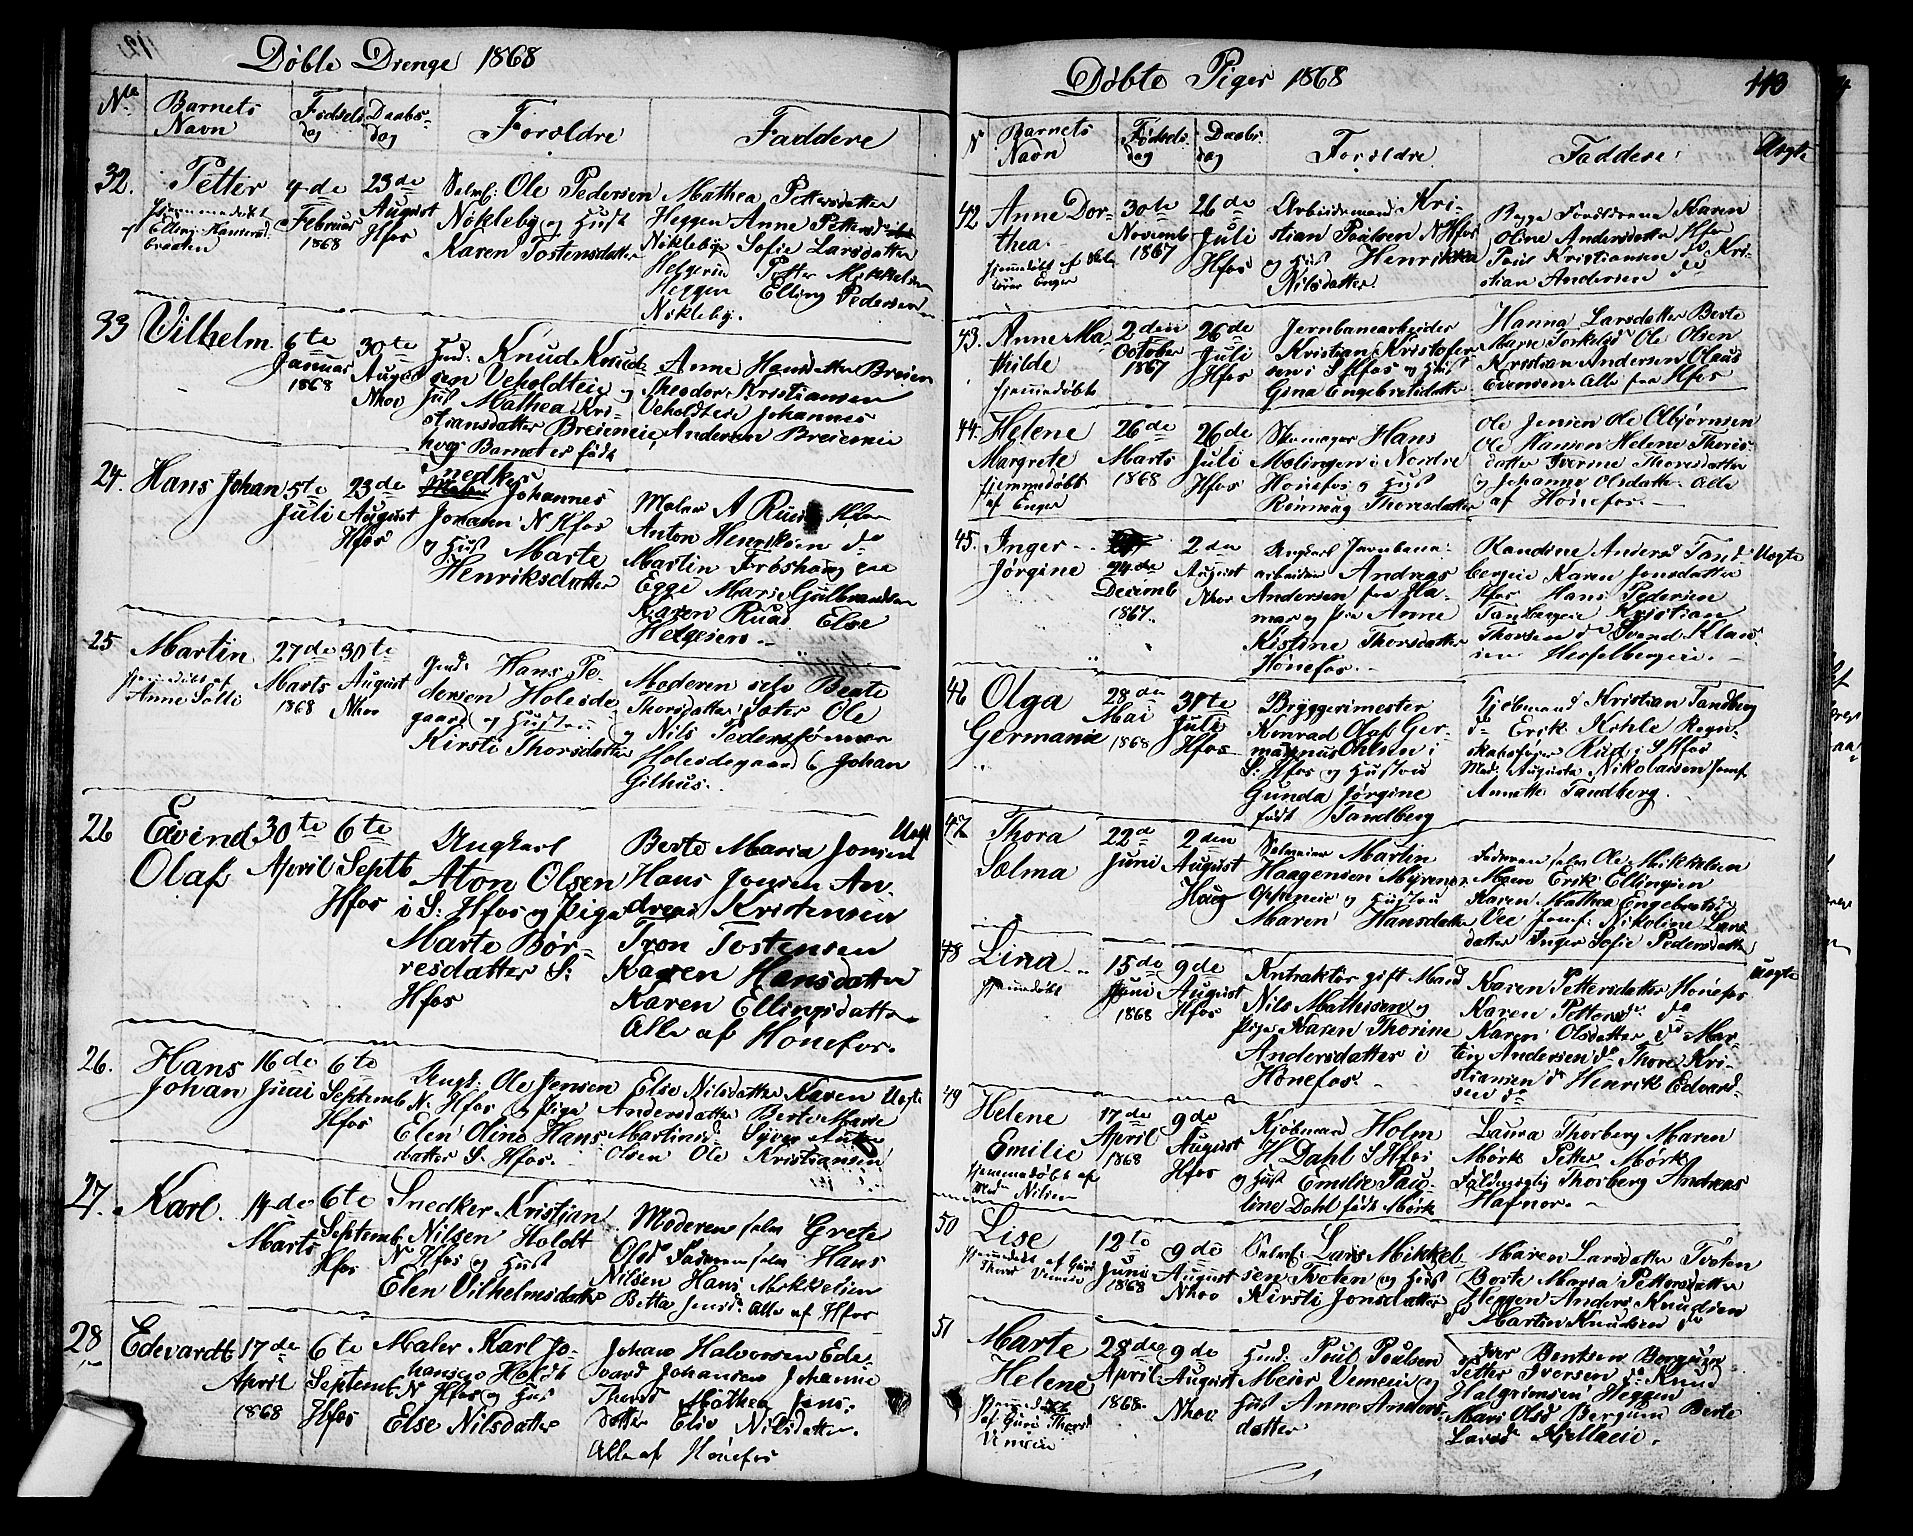 Döbte Drenge 1868
No
Barnets Navn
Fødsels dag
Daabs- dag
Foroldre
Faddere
32.
Petter
4de Februar 1868
23de August Hfos
Selvei: Ole Pedersen
Nökleby og Hust
Karen Tostensdatter
Mathea Pettersdatter
Heggen Anne Pettersd
Nökleby Sofie Larsdatter
Petter Mikkelsen
Heggen Elling Pedersen
Nökleby.
33
Vilhelm.
6te Januar 1868
30te August Nhov
Knud Knud-
sen Veholdteie og
Hust Mathea Kri-
stiansdatter Breieneie
hvor Barnet er födt
Anne Hansdatter Breien
Theodor Kristiansen
Veholdteie Johannes
Andersen Breieneie
24.
Hans Johan
5te Juli
23de August Hfos
Snedker
Johannes
Johansen N Hfos
og Hust Marte
Henriksdatter
Maler A Ruud Hfos
Anton Henriksen do
Martin Fröshaug paa
Egge Marie Gulbrandsen
Karen Ruud Else
Helgesen..
25
Martin
Anne Solli
27de Marts 1868
30te August Nhov
Hans Pe-
dersen Holesde-
gaard og Hustru
Kirsti Thorsdatter
Moderen selv Beate
Thorsdatter Sæter Ole
og Nils Pedersönner
Holesdegaard Johan
Gilhus.
26
Eivind
Olaf
30te April
6te Septb Hfos
Ungkarl
Aton Olsen
i S: Hfos og Pige
Marte Bör-
resdatter S:
Hfos
Berte Maria Jonsen
Hans Jonsen An-
dreas Kristensen
Tron Tostensen
Karen Hansdatter
Karen Ellingsdatter
Alle af Hönefos.
Uegt
26.
Hans
Johan
16de Juni
6te Septemb Hfos
Ungk: Ole Jensen
N. Hfos og Pige
Elen Oline Hans
datter S. Hfos.
Else Nilsdatter Karen
Andersdatter Berte Marie
Olsen Ole Kristiansen
Uegte
27.
Karl.
14de Marts
6te Septemb Hfos
Snedker Kristian
Nilsen Holdt
N Hfos og Hust
Elen Vilhelmsdatter
Moderen selv Grete
Olsd Faderen selv Hans
Nilsen Hans Mikkelsen
Betta Jensd. Alle af Hfos
28
Edevardt
17de April 1868
6te Septemb Hfos
Maler Karl Jo-
hansen Holdt
N Hfos og Hus
Else Nilsdatter
Johan Halvorsen Ede-
vard Johansen Johanne
Thorsd Mathea Jens-
datter Else Nilsdatter.
Alle af Hönefos
Döbte Piger 1868
113
N
Barnets Navn
Fødsels dag
Daabs dag
Foroldre
Faddere
Uegte
42
Anne Dor-
thea.
hjemmedöbt af
Enger
30te Novemb 1867
26de Juli Hfos
Arbeidsmand Kri-
stian Poulsen N Hfos
og Hust Henrikka
Nilsdatter.
Begge Foroldrene Karen
Oline Andersdatter Hfos
Poul Kristiansen do Kri-
stian Andersen do
43.
Anne Ma-
thilde
hjemmedöbt
2den October 1867
26de Juli Hfos
Jernbanearbeider
Kristian Kristofer-
sen i S Hfos og Hust
Gina Engebretsdatter
Hanna Larsdatter Berte
Marie Torkelsd Ole Olsen
Kristian Andersen Olaus
Evensen. Alle paa Hfos
44.
Helene
Margrete
hjemmedöbt
af Enger
26de Marts 1868
26de Juli Hfos
Skomager Hans
Melingen i Nordre
Hönefos og Hust
Rönnaug Thoresdatter
Ole Jensen Ole Asbjörnsen
Ole Hansen Helene Thoris-
datter Iverine Thoresdatter
og Johanne Olsdatter. Alle
af Hönefos.
45.
Inger
Jörgine
24de Decemb 1867.
2den August Nhov
Ungkarl Jernbane-
arbeider Andreas
Andersen fra Ha-
mar og Pige Anne
Kistine Thorsdatter
Hönefos.
Randine Andersd Tand-
bergeie Karen Jensdatter
Hfos Hans Pedersen
Tandbergeie Kristian
Thorsen do Svend Klau
sen Hesselbergeie.
Uegte
46
Olga
Germanie
28de Mai 1868
31te Juli Hfos
Bryggerimester
Konrad Olaf Ger-
manus Ohlsen i
S: Hfos og Hustru
Gunda Jörgine
födt Tandberg
Kjöbmand Kristian Tandberg
do Erik Kihle Regn-
skabsförer Rud i S Hfos
Mad. Augusta Nikolaisen Jomf
Annette Tandberg.
47
Thora
Selma
22d Juni
2den August Haug
Selveier Martin
Haagensen Myrene
Oppeneie og Hustru
Maren Hansdatter
Faderen selv Ole Mikkelsen
Moen Erik Ellingsen
Karen Mathea Engebretsd
Vee Jomf: Nikoline Lars
datter Inger Sofie Pedersdatter
48
Lina
hjemmedöbt
15de Juni 1868
9de August Hfos
Kontraktör gift Mand
Nils Mathisen og
Pige Karen Thorine
Andersdatter i
Hönefos.
Karen Pettersdatter Hönefos
Karen Pettersd. do
Karen Olsdatter do Mar-
tin Andersen do Thore Kri-
stiansen do Henrik Edvard-
sen do
Uegte
49
Helene
Emilie
hjemmedöbt af
Mad Nilsen
17de April 1868
9de August Hfos
Kjöbmand Holm
H Dahl S Hfos
og Hust Emilie Pau-
line Dahl födt Mörk
Laura Thorberg Maren
Mörk Petter Mörk
Fuldmægtig Thorberg Andreas
Hafnor.
50
Lise
12te Juni 1868
9de August Nhov
Selvei: Lars Mikkel-
sen Tveten og Hust
Kirsti Jonsdatter
Maren Larsdatter Tveten
Berte Maria Pettersdatter
Heggen Anders Knudsen
do Martin Knudsen do
51
Marte
Helene
af Guri Thorsd
Vemeie
28de April 1868.
9de August Nhov
Husd: Poul Poulsen
Meier Vemeie og
Hust Anne Anders-
datter
Iver Bentsen Bergum
og Petter Iversen do Knud
Halgrimsen Heggen
Mari Olsd Bergum Berte
Larsd Hjelleeie.